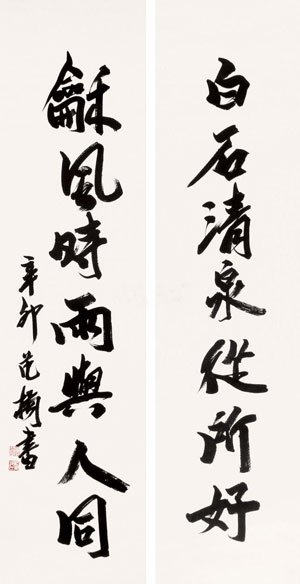 白石清泉從所好
龢風時雨與人同
辛卯范書